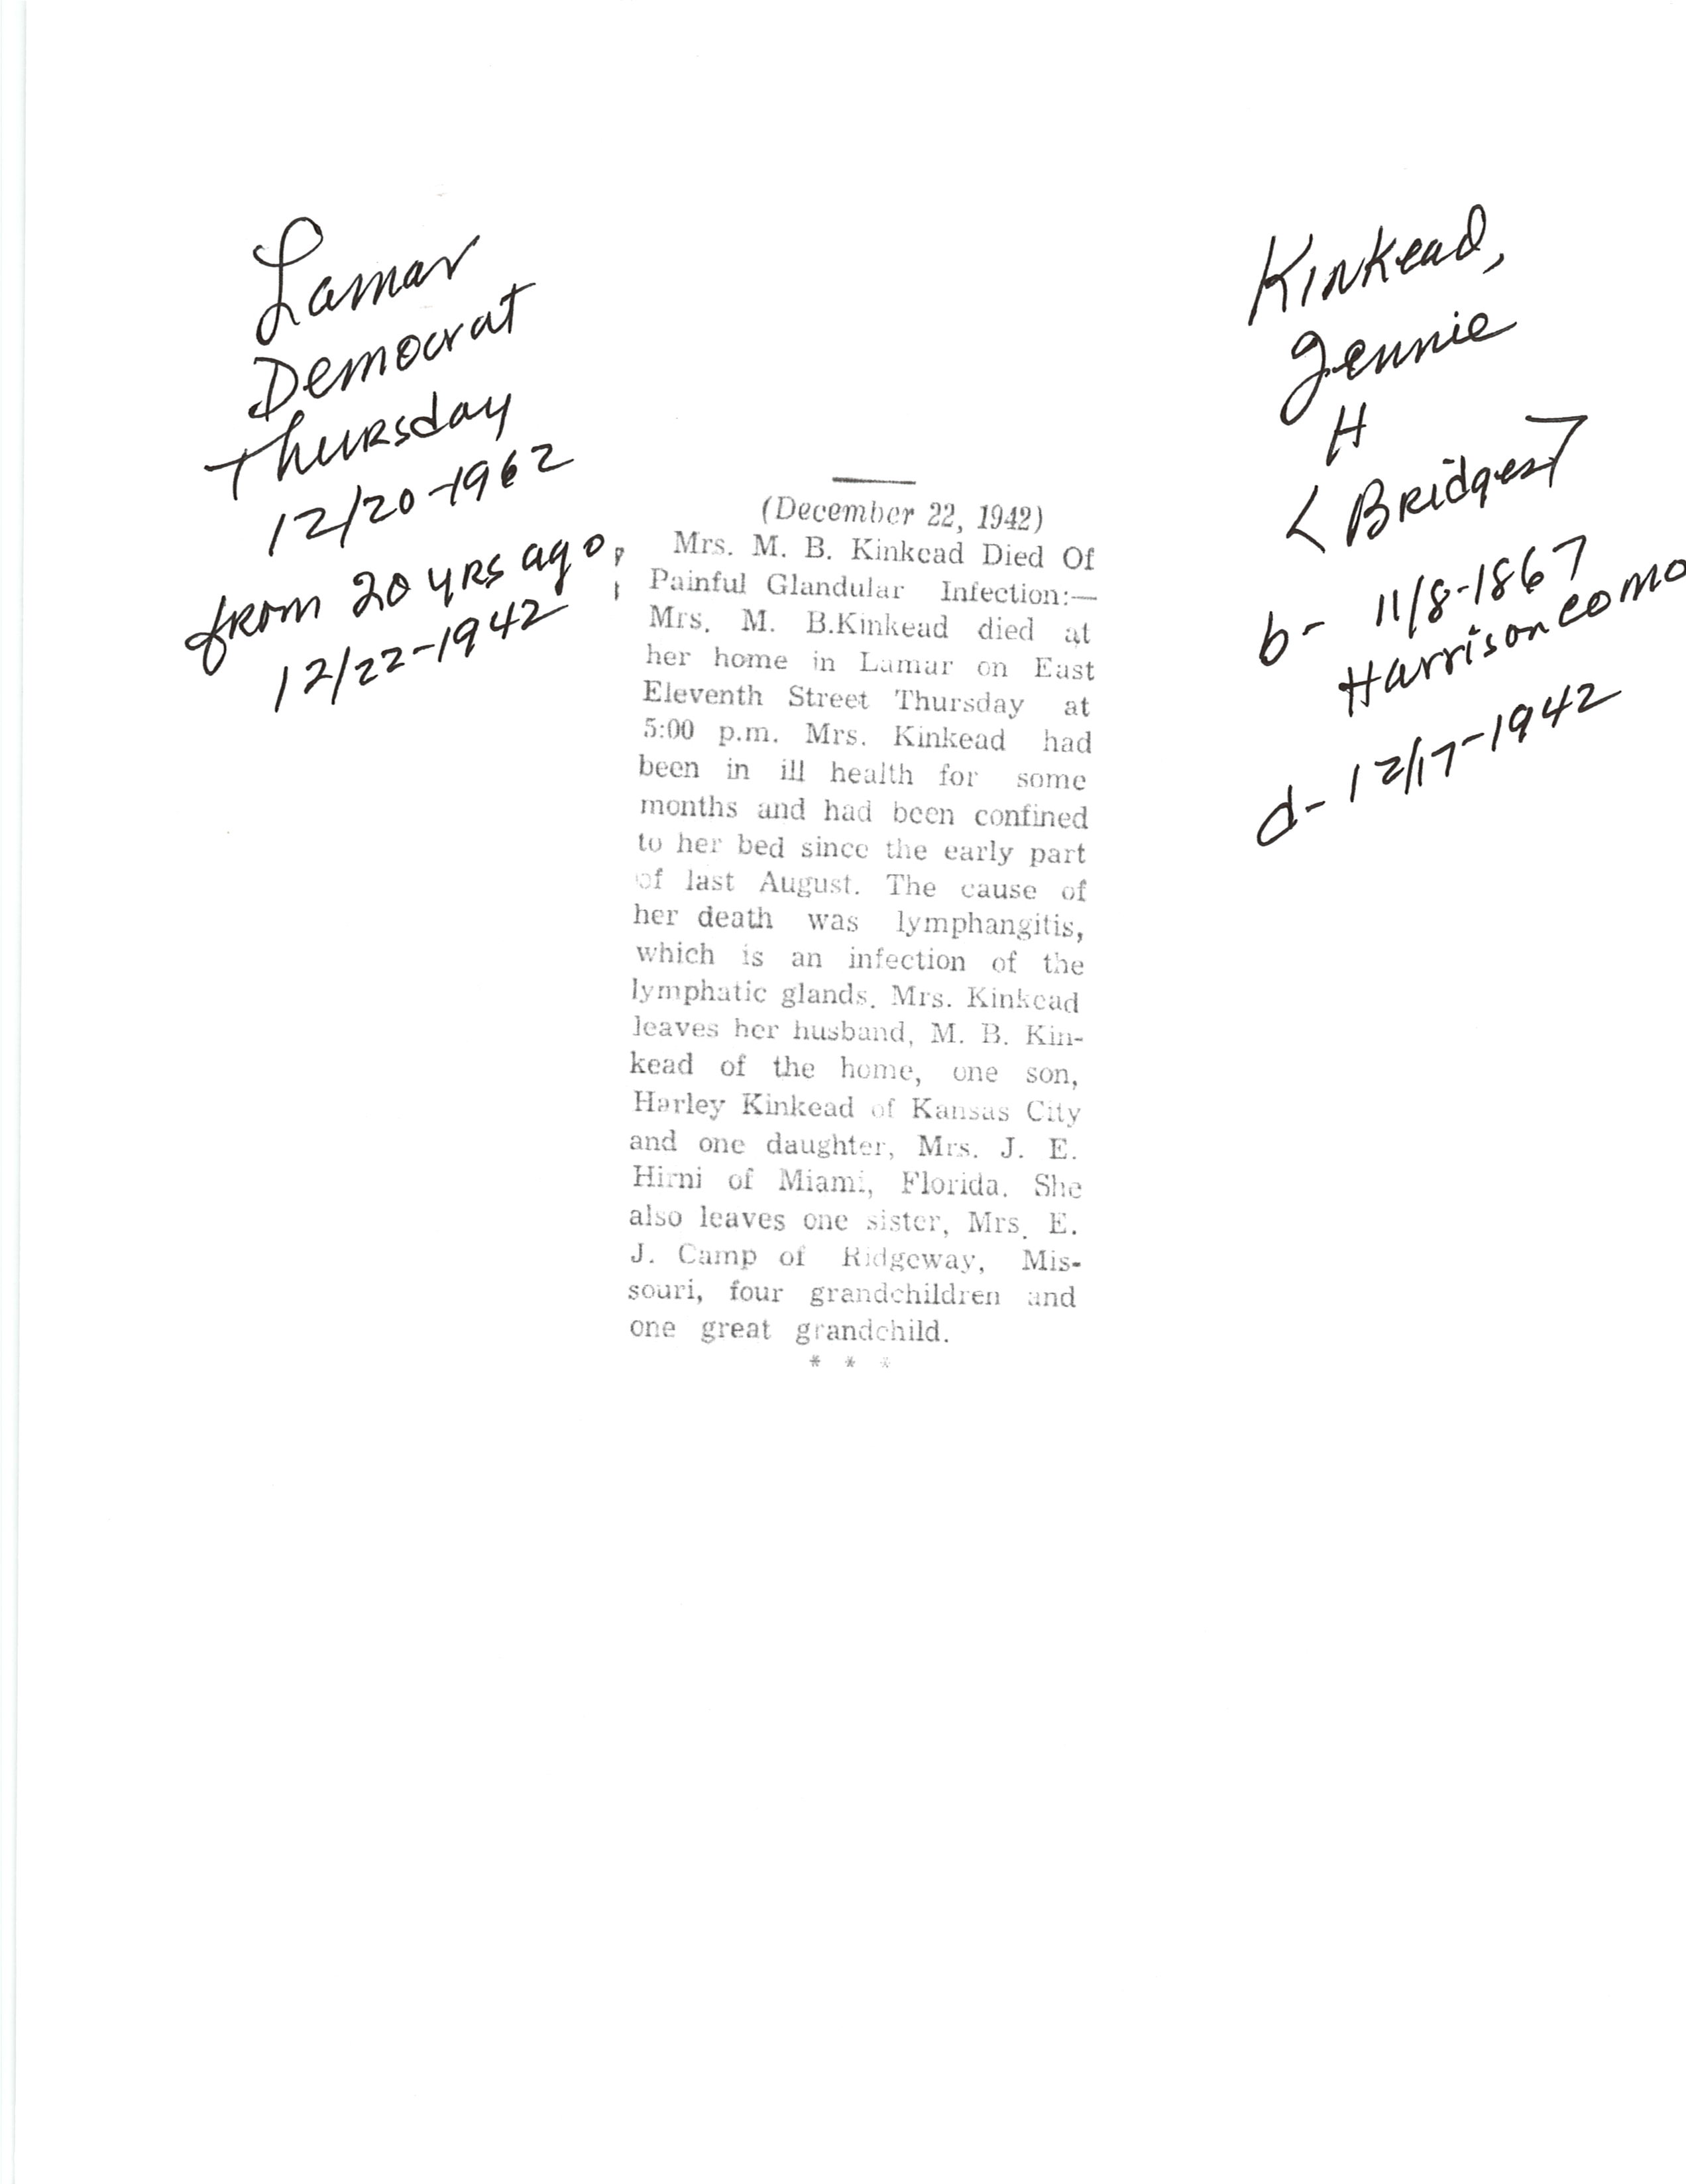 Lamar
Democrat
Thursday
12/20-1962
from 20 yrs ago,
12/22-1942
Kinkead,
Jennie
H
< Bridges>
b- 11/8-1867
Harrison co mo
d- 12/17-1942
(December 22, 1942)
Mrs. M. B. Kinkead Died Of
Painful Glandular Infection:—
Mrs. M. B.Kinkead died at
her home in Lamar on East
Eleventh Street Thursday at
5:00 p.m. Mrs. Kinkead had
been in ill health for some
months and had been confined
to her bed since the early part
of last August. The cause of
her death was lymphangitis,
which is an infection of the
lymphatic glands. Mrs. Kinkead
leaves her husband, M. B. Kin-
kead of the home, one son,
Harley Kinkead of Kansas City
and one daughter, Mrs. J. E.
Hirni of Miami, Florida. She
also leaves one sister, Mrs. E.
J. Camp of Ridgeway, Mis-
souri, four grandchildren and
one great grandchild.
* * *